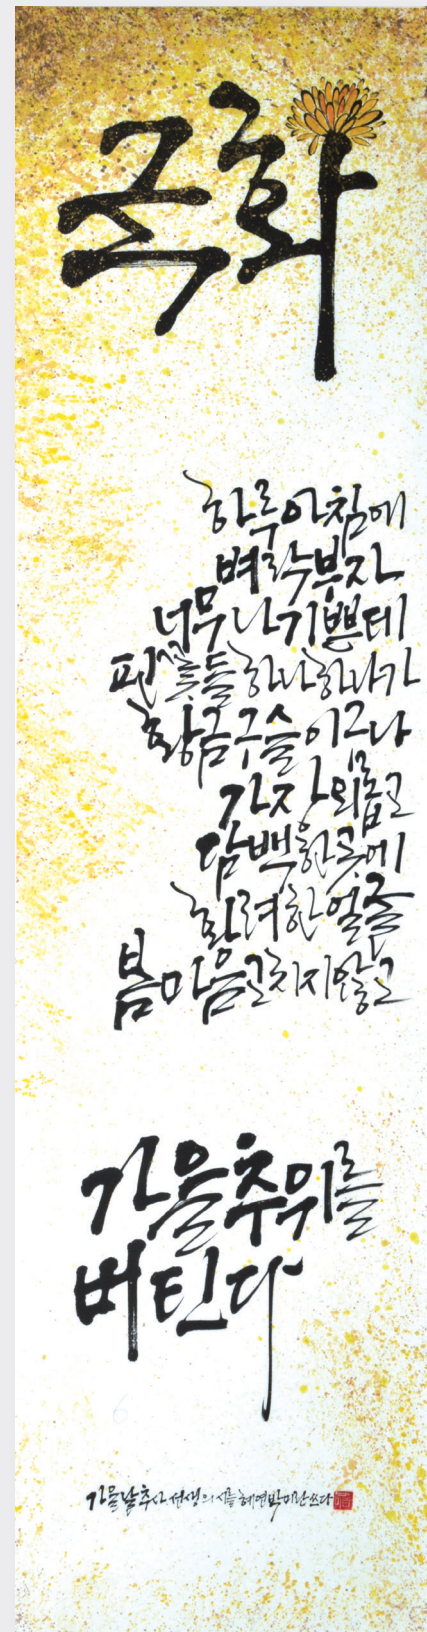 국화
하루아침에
벼락부자
너무나 기쁜데
핀꽃들 하나하나가
황금구슬이구나
가장 외롭고
담백한 곳에
화려한 얼굴
봄마음 고치지 않고
가을추위를
버틴다
가을날 추사 선생의 시를 혜연 박미란 쓰다